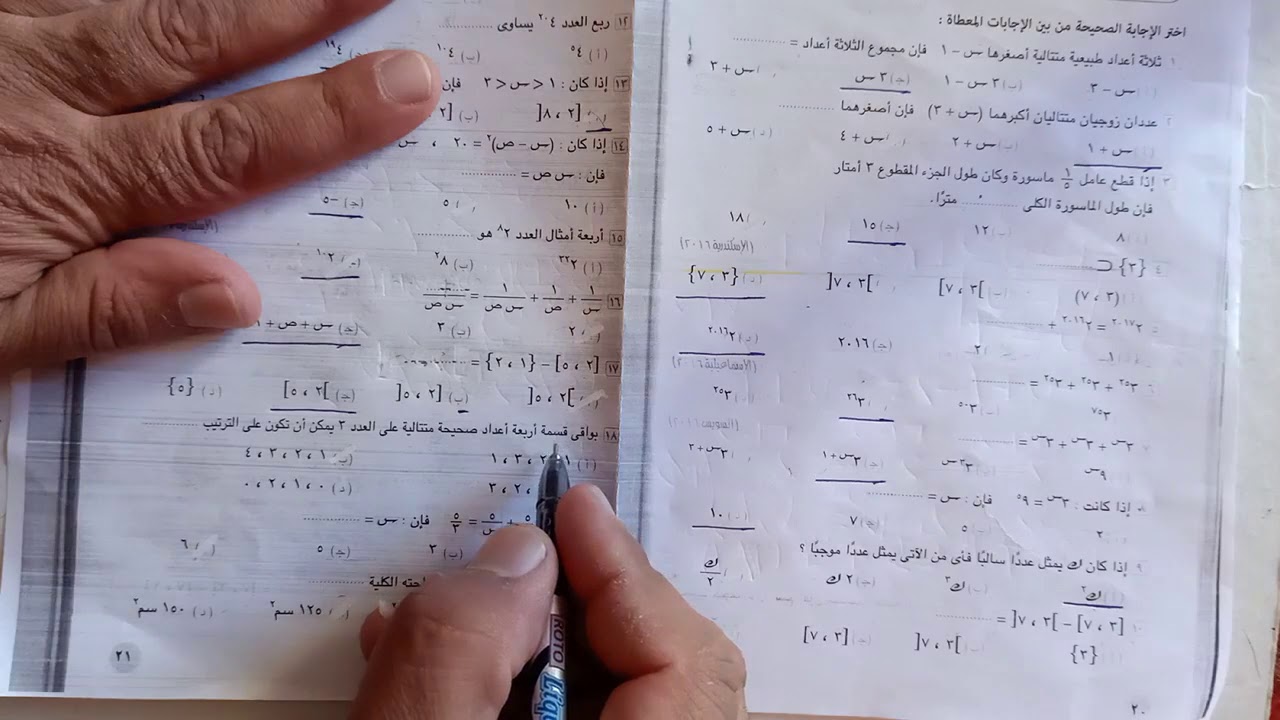 اختر الإجابة الصحيحة من بين الإجابات المعطاة :
١ ثلاثة أعداد طبيعية متتالية أصغرها س − ١ فإن مجموع الثلاثة أعداد = ............
س − ٣ (ب) ٣ س − ١ (جـ) ٣ س س + ٣
٢ عددان زوجيان متتاليان أكبرهما (س + ٣) فإن أصغرهما ............
(أ) س + ١ (ب) س + ٢ س + ٤ (د) س + ٥
٣ إذا قطع عامل ١/٥ ماسورة وكان طول الجزء المقطوع ٣ أمتار
فإن طول الماسورة الكلى ............ مترًا.
(أ) ٨ (ب) ١٢ (جـ) ١٥ ١٨
(الإسكندرية ٢٠١٦)
٤ {٣} ⊂ ............
(٣ ، ٧) (ب) ]٣ ، ٧] ]٣ ، ٧[ (د) {٣ ، ٧}
٢^٢٠١٧ = ٢^٢٠١٦ + ............
(أ) ١ (ب) ٢ (جـ) ٢٠١٦ (د) ٢^٢٠١٦
٣^٢٥ + ٣^٢٥ + ٣^٢٥ = ............
٣^٧٥ ٣^٥٠ ٣^٢٦ ٣^٢٥
٣^س + ٣^س + ٣^س = ............
٩^س (ب) ٣^٣س (جـ) ٣^س+١ ٣^س+٣
٨ إذا كانت : ٣^س = ٩^٥ فإن : س = ............
٢ (ب) ٥ (جـ) ٧ (د) ١٠
٩ إذا كان ك يمثل عددًا سالبًا فأى من الآتى يمثل عددًا موجبًا ؟
(أ) ك^٢ (ب) ك^٣ (جـ) ٢ ك ك/٢
١٠ [٣ ، ٧] − ]٣ ، ٧[ = ............
{٣} (ب) ]٣ ، ٧[ (جـ) [٣ ، ٧]
٢٠
١٢ ربع العدد ٤^٢٠ يساوى ............
(أ) ٤^٥ (ب) ٤^١٠ ٤^١٩
١٣ إذا كان : ١ < س < ٣ فإن
[٢ ، ٨[ (ب) [٢
١٤ إذا كان : (س − ص)^٢ = ٢٠ ، س
فإن : س ص = ............
(أ) ١٠ ٥ (جـ) −٥
١٥ أربعة أمثال العدد ٢^٨ هو ............
(أ) ٢^٣٢ (ب) ٨^٢ ٢^١٠
١٦ ١/س + ١/ص + ١/س ص = ............/س ص
٢ (ب) ٣ (جـ) س + ص + ١
١٧ [٢ ، ٥] − {١ ، ٢} = ............
]٢ ، ٥[ (ب) [٢ ، ٥[ (جـ) ]٢ ، ٥] (د) {٥}
١٨ بواقى قسمة أربعة أعداد صحيحة متتالية على العدد ٣ يمكن أن تكون على الترتيب ............
(أ) ١ ، ٢ ، ٣ ، ١ (ب) ١ ، ٢ ، ٣ ، ٤
، ٢ ، ٣ (د) ٠ ، ١ ، ٢ ، ٠
٥/س = ٥/٣ فإن : س = ............
(ب) ٣ (جـ) ٥ ٦
الكلية ............
١٢٥ سم^٢ (د) ١٥٠ سم^٢
٢١
ROTO
Liqu